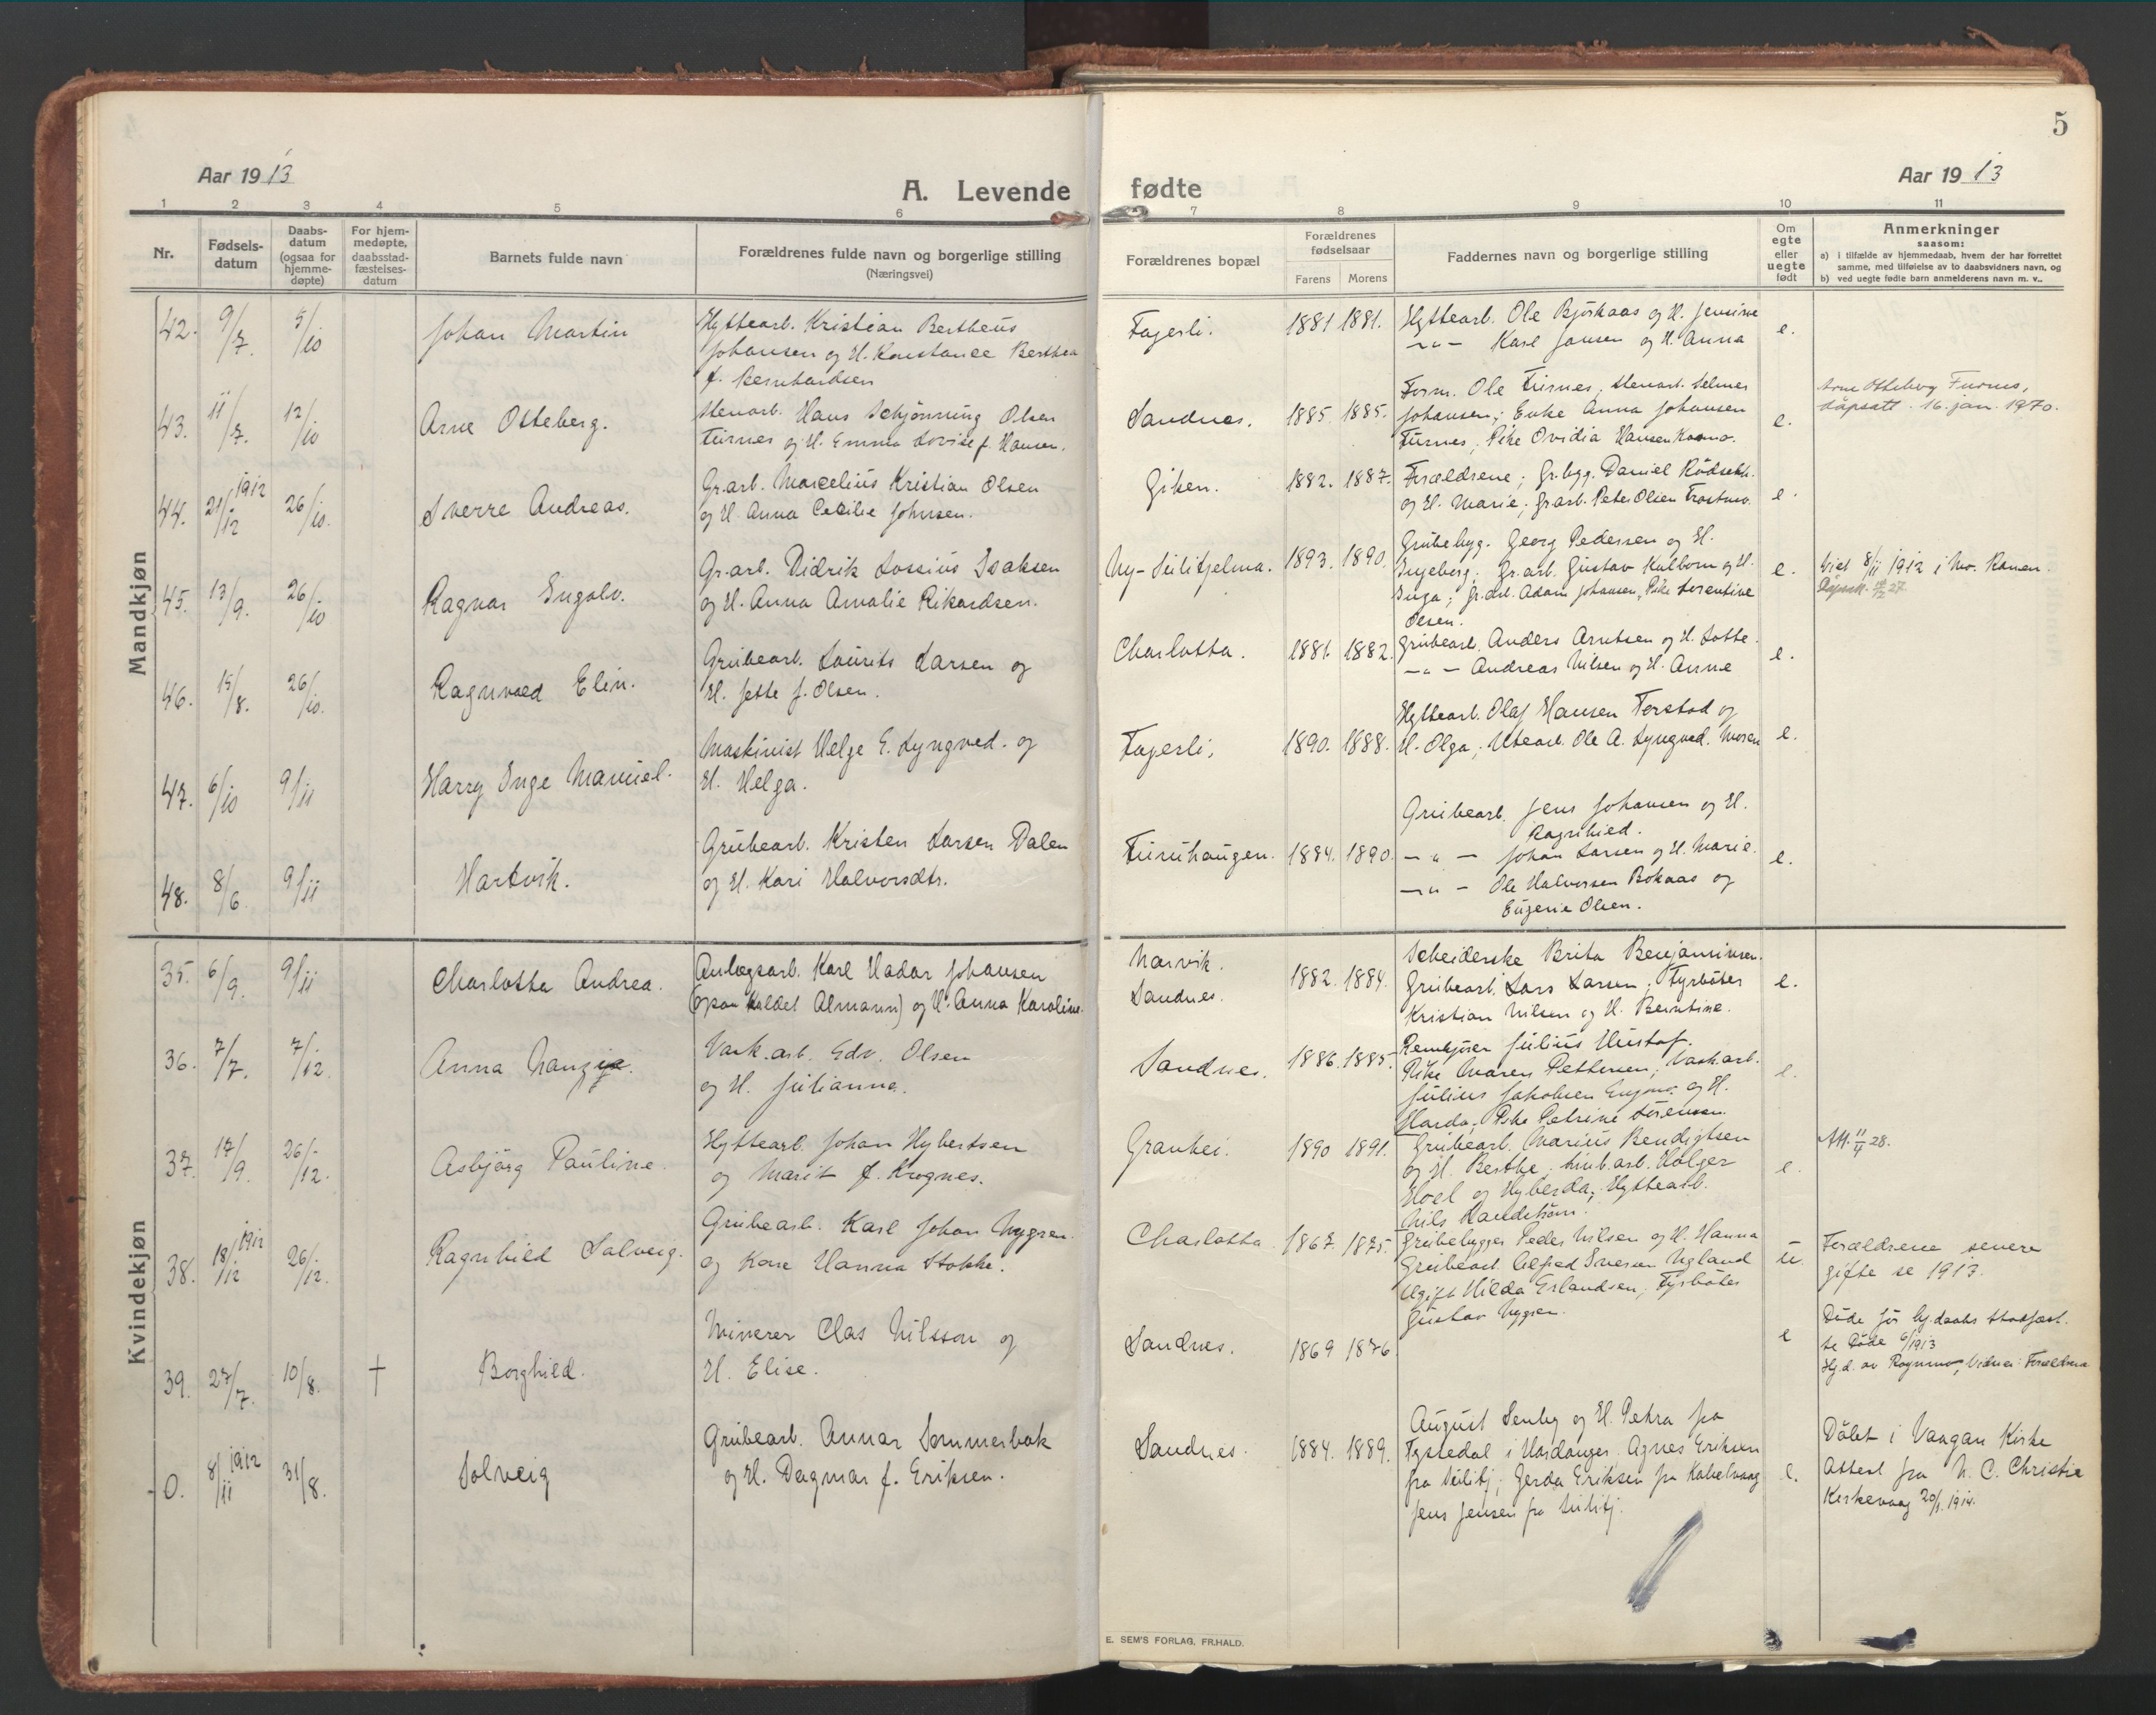 Aar 1913
A. Levende
1 2 3 4 5 6
Nr. Fødsels-datum Daabs-datum (ogsaa for hjemme-døpte) For hjem-medøpte, daabsstad-fæstelses-datum Barnets fulde navn Forældrenes fulde navn og borgerlige stilling (Næringsvei)
Mandkjøn
42. 9/7. 5/10 Johan Martin
Hyttearb. Kristian Bertheus
Johansen og H. Konstance Berthea
f. Bernhardsen
43. 11/7. 12/10 Arne Otteberg.
Stenarb. Hans Schjønning Olsen
Furnes og H. Emma Lovise f. Hansen.
44. 21/12 1912 26/10. Sverre Andreas.
Gr.arb. Marcelius Kristian Olsen
og H. Anna Cecilie Johnsen.
45. 13/9. 26/10 Ragnar Ingolv.
Gr.arb. Didrik Lossius Isaksen
og H. Anna Amalie Rikardsen.
46. 15/8. 26/10. Ragnvald Elin.
Grubearb. Laurits Larsen og
H. Jette f. Olsen.
47. 6/10 9/11 Harry Inge Manuel.
Maskinist Helge E. Lyngved. og
H. Helga.
48. 8/6. 9/11 Hartvik.
Grubearb. Kristen Larsen Dalen
og H. Kari Halvorsdtr.
Kvindekjøn
35. 6/9. 9/11 Charlotta Andrea.
Anlegsarb. Karl Hadar Johansen
(ogsaa kaldet Almann) og H. Anna Karoline.
36. 7/7. 7/12 Anna
Vask.arb. Edv. Olsen
og H. Julianna.
37. 17/9. 26/12. Asbjørg Pauline.
Hyttearb. Johan Hybertsen
og Marit f. Krognes.
38. 18/12 1912 26/12. Ragnhild Solveig.
Grubearb. Karl Johan Nygren
og Kone Hanna Stokke.
39. 27/7. 10/8. † Borghild.
Minerer Clas Nilsson og
H. Elise.
0. 8/11 1912 31/8. Solveig
Grubearb. Annar Sommerbak
og H. Dagmar f. Eriksen.
5
fødte
Aar 1913
7 8 9 10 11
Forældrenes bopæl Forældrenes fødselsaar Farens Morens Faddernes navn og borgerlige stilling Om egte eller uegte født
Anmerkninger
saasom:
a) i tilfælde av hjemmedaab, hvem der har forrettet
samme, med tilføielse av to daabsvidners navn, og
b) ved uegte fødte barn anmelderens navn m. v..
Fagerli. 1881 1881.
Hyttearb. Ole Bjørkaas og H. Jensine
—„— Karl Jansen og H. Anna
e.
Sandnes. 1885. 1885.
Form. Ole Furnes; Stenarb. Selmer
Johansen; Enke Anna Johansen
Furnes; Pike Ovidia Hansen
e.
Arne Otteberg Furnes,
dåpsatt. 16. jan. 1970.
Giken. 1882. 1887.
Forældrene; Gr.bygg. Daniel
og H. Marie; Gr.arb. Peter Olsen
e.
Ny-Sulitjelma. 1893. 1890.
Grubebyg. Georg Pedersen og H.
Ingeborg; Gr.arb. Gustav Kalborn og H.
Inga; Gr.arb. Adam Johansen, Pike Lorentine
Olsen.
e.
Viet 8/11 1912 i Mo. Ranen.
Charlotta. 1881. 1882.
Grubearb. Anders Arntsen og H. Lotte.
—„— Andreas Nilsen og H. Anne
e.
Fagerli. 1890. 1888.
Hyttearb. Olaf Hansen Forstad og
H. Olga; Utearb. Ole A. Lyngved. Moren
e.
Furuhaugen. 1884. 1890.
Grubearb. Jens Johansen og H.
Ragnhild.
—„— Johan Larsen og H. Marie.
—„— Ole Halvorsen Bokaas og
Eugenie Olsen.
e.
Narvik.
Sandnes. 1882. 1884.
Scheiderske Brita Benjaminsen.
Grubearb. Lars Larsen; Fyrbøter
Kristian Nilsen og H. Berntine.
e.
Sandnes. 1886. 1885.
Julius Hustof.
Pike Maren Pettersen; Vaskarb.
Julius Jakobsen og H.
Harda; Pike Petrine Sørensen.
e.
Granhei. 1890 1891.
Grubearb. Marius Bendigtsen
og H. Berthe; Linb.arb. Holger
Hoel og Hyberda; Hyttearb.
Nils
e.
Att. 11/4 28.
Charlotta 1867. 1875.
Grubebygger Peder Nilsen og H. Hanna
Grubearb. Alfred Iversen Ugland
Ugift Hilda Erlandsen; Fyrbøter
Gustav Nygren.
u.
Forældrene senere
gifte se 1913.
Sandnes. 1869 1876.
e
Døde før hj.daabs stadfæst.
se Døde 6/1913
Hj.d. av Rognmo, Vidner: Forældrene
Sandnes. 1884. 1889.
August Senby og H. Petra fra
Tyssedal i Hardanger. Agnes Eriksen
fra Sulitj; Gerda Eriksen fra Kabelvaag
Jens Jensen fra Sulitj.
e.
Døbt i Vaagan Kirke
Attest fra N. C. Christie
Kirkevaag 20/1. 1914.
E. SEM'S FORLAG, FR.HALD.